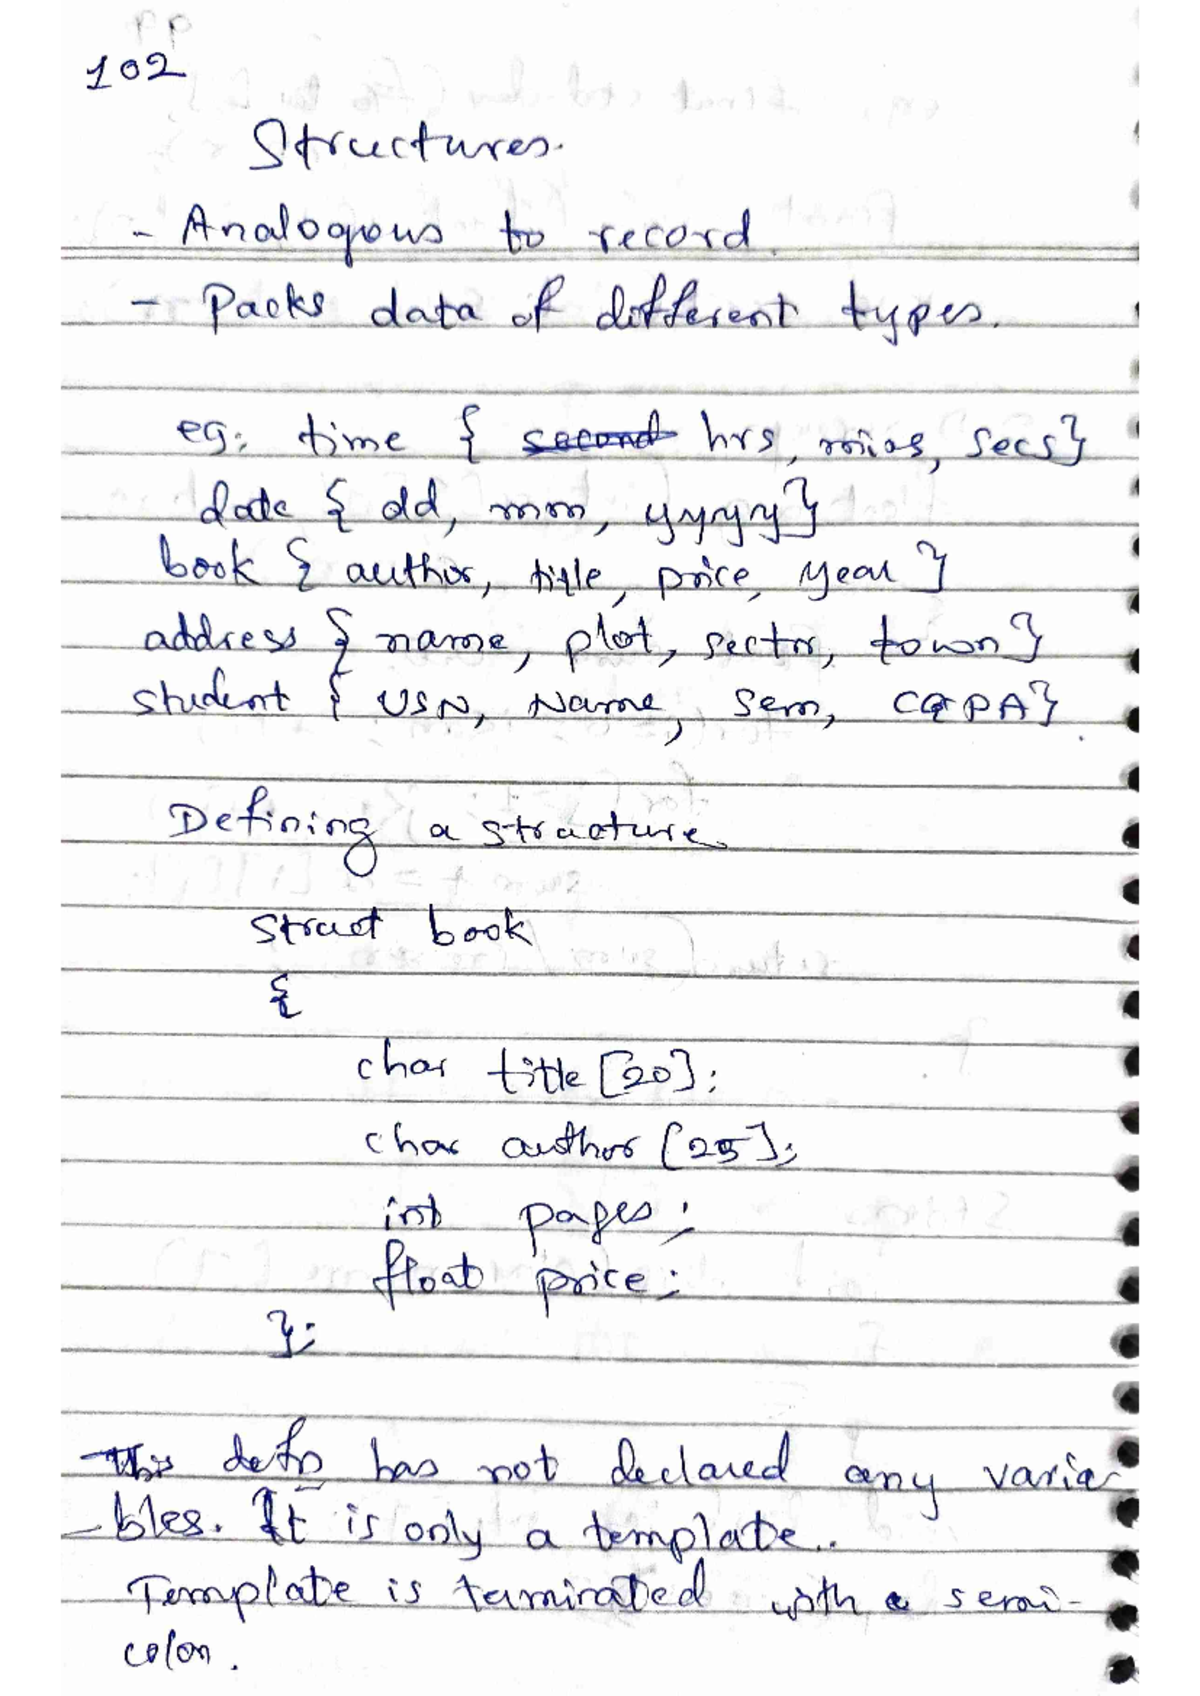 102
Structures.
- Analogous to record.
- Packs data of different types.
eg: time { second hrs, mins, secs}
date { dd, mm, yyyy}
book { author, title, price, year }
address { name, plot, sector, town}
student { USN, Name, Sem, CGPA}.
Defining a structure.
struct book
{
char title [20];
char author [25];
int pages;
float price;
};
This defn has not declared any varia-
bles. It is only a template..
Template is terminated with a semi-
colon.